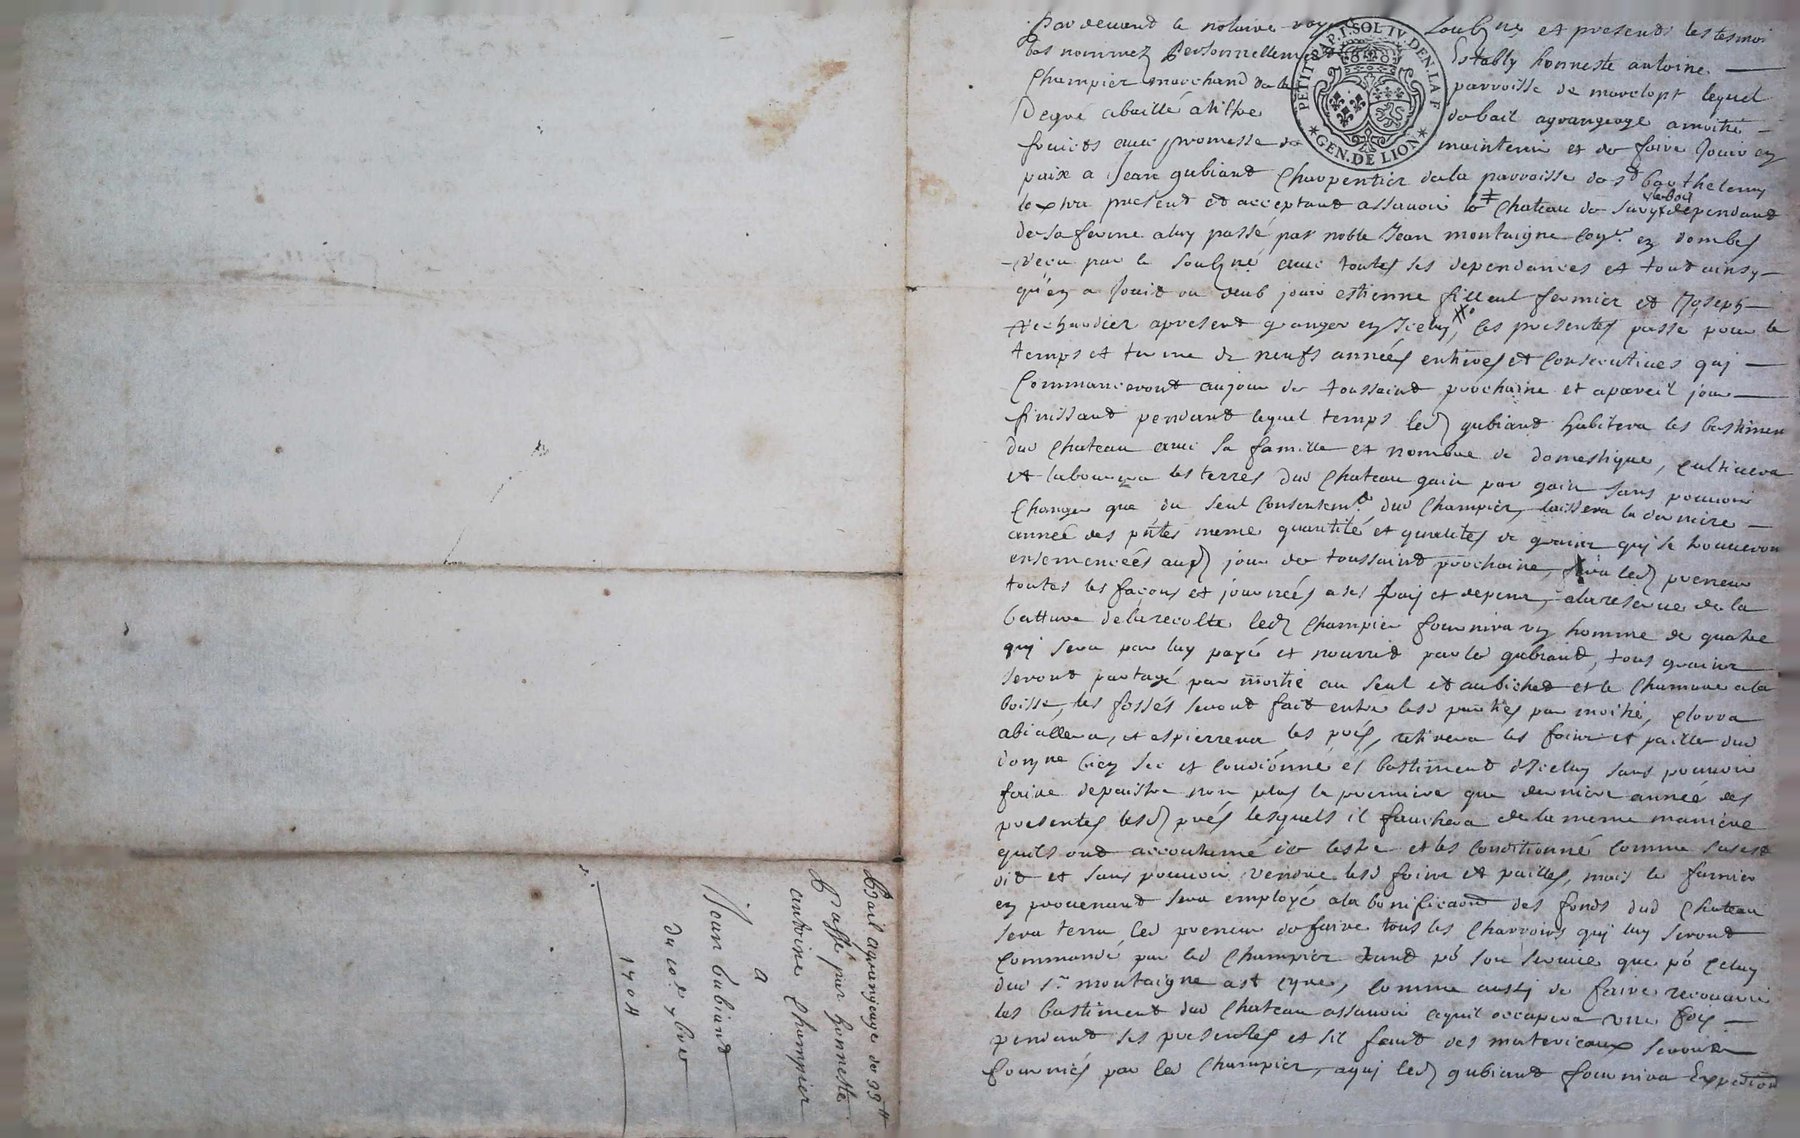 Par devant le notaire royal soubne et presents les tesmoi
bas nommez Personnellement Estably honneste antoine
Champier marchand de la parroisse de marclopt lequel
Degré a baillé a tiltre de bail a grangeage a moitié
fruicts avec promesse de maintenir et de faire Jouir en
paix a Jean gubiand Charpentier de la parroisse de st barthelemy
present et acceptant assavoir le Chateau de dependant
de sa ferme a luy passé par noble Jean montaigne Coner en dombes
receu par le soubne avec toutes ses dependances et tout ainsy
qu'en a Jouit ou deub jouir estienne filleul fermier et Joseph
a present granger en Iceluy, les presentes passé pour le
temps et terme de neufs années entieres et Consecutives qui
Commanceront au jour de toussaint prochaine et a pareil jour
finissant pendant lequel temps led gubiand habitera les bastimen
dud Chateau avec sa famille et nombre de domestique, cultivera
et labourera les terres dud Chateau gain par gain sans pouvoir
Changer que du seul Consentemt dud Champier, laissera la derniere
année des pntes meme quantité et qualités de grains qui se trouveron
ensemencées aud jour de toussaint prochaine, fera led preneur
toutes les façons et journées a ses frais et depens, a la reserve de la
batture de la recolte led Champier fournira un homme de quatre
qui sera par luy payé et nourrit par le gubiand, tous grains
seront partagé par moitié au seul et au bichet et le Chanvre a la
boisse, les fossés seront fait entre lesd parties par moitié, clorra
abiallera, et espierrera les prés, retirera les foins et paille dud
domne bien sec et Condionné es bastiment d'Iceluy sans pouvoir
faire depaistre non plus la premiere que derniere année des
presentes lesd prés lesquels il fauchera de la meme maniere
quils ont accoutumé de lestre et les Conditionné comme susest
dit et sans pouvoir vendre lesd foins et pailles, mais le fumier
en provenant sera employé a la bonificaon des fonds dud Chateau
sera tenu led preneur de faire tous les Charrois qui luy seront
Commandé par led Champier tant po son service que po Celuy
dud sr montaigne a st cyre, Comme aussi de faire recouvrir
les bastiment dud Chateau assavoir ce quil occupera une fois
pendant ses presentes et sil faut des materieaux seront
fournies par led Champier, a qui led gubiand fournira Expedition
Bail a grangeage de 33#
Passé par honneste
antoine Champier
a
Jean Gubiand
du 10e xbre
1704